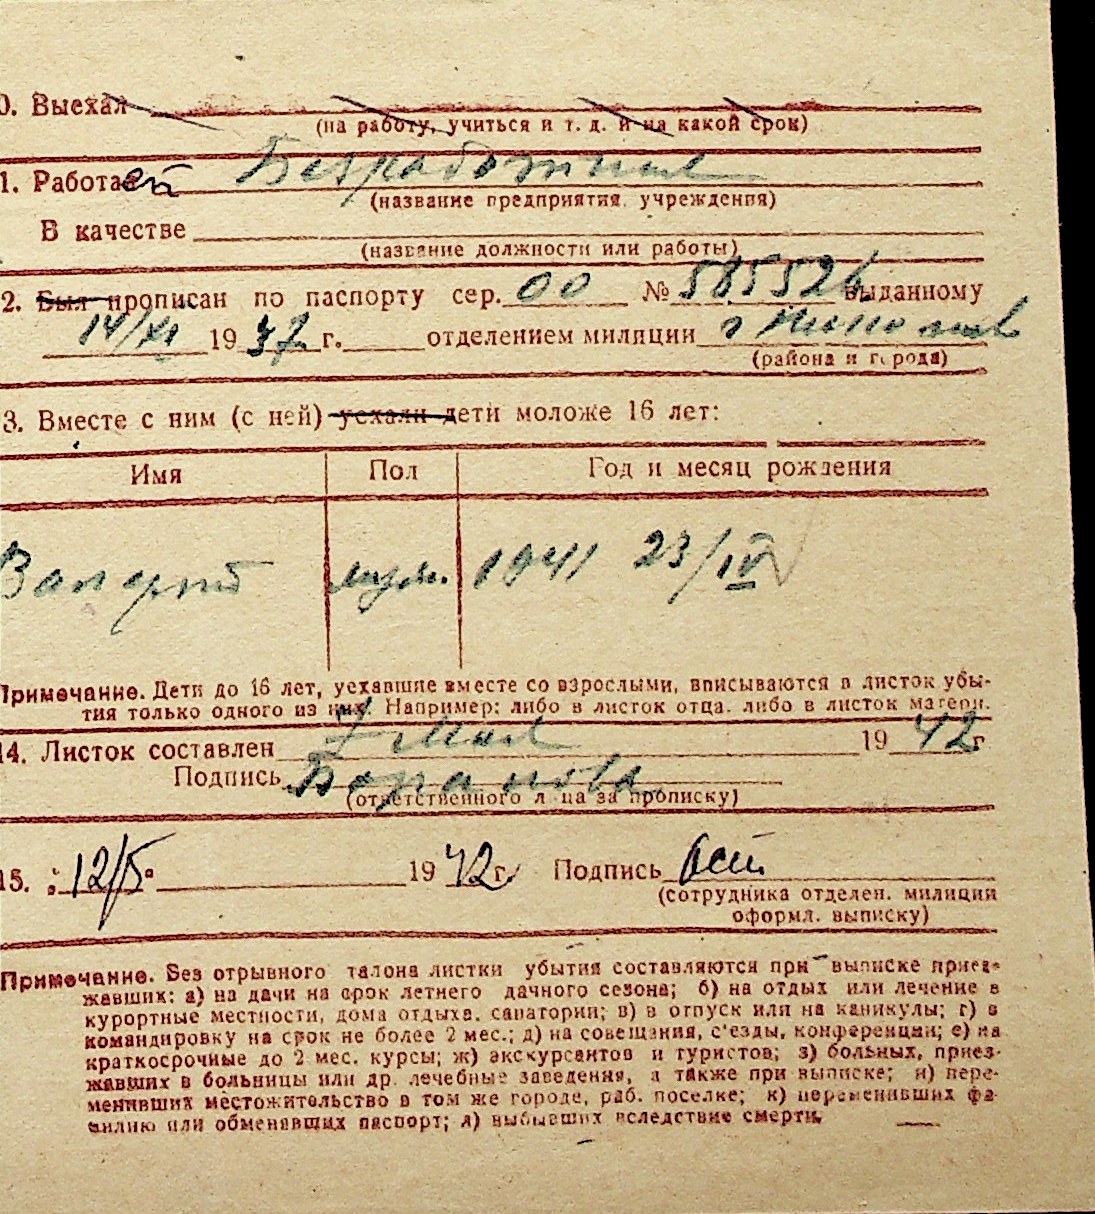 0. Выехал
(на работу, учиться и т. д. и на какой срок)
1. Работает
(название предприятия, учреждения)
В качестве
(название должности или работы)
2. Был прописан по паспорту сер. 00 № 585526 выданному
14/XI 1937 г. отделением милиции г
(района и города)
3. Вместе с ним (с ней) уехали дети моложе 16 лет:
Имя Пол Год и месяц рождения
муж. 1941 23/IV
Примечание. Дети до 16 лет, уехавшие вместе со взрослыми, вписываются в листок убы-
тия только одного из них. Например: либо в листок отца, либо в листок матери.
14. Листок составлен 7 мая 1942 г
Подпись Баранова
(ответственного лица за прописку)
15. „12/5“ 1942 г. Подпись
(сотрудника отделен. милиции
оформл. выписку)
Примечание. Без отрывного талона листки убытия составляются при выписке приез-
жавших: а) на дачи на срок летнего дачного сезона; б) на отдых или лечение в
курортные местности, дома отдыха, санатории; в) в отпуск или на каникулы; г) в
командировку на срок не более 2 мес.; д) на совещания, с'езды, конференции; е) на
краткосрочные до 2 мес. курсы; ж) экскурсантов и туристов; з) больных, приез-
жавших в больницы или др. лечебные заведения, а также при выписке; и) пере-
менивших местожительство в том же городе, раб. поселке; к) переменивших фа-
милию или обменявших паспорт; л) выбывших вследствие смерти.